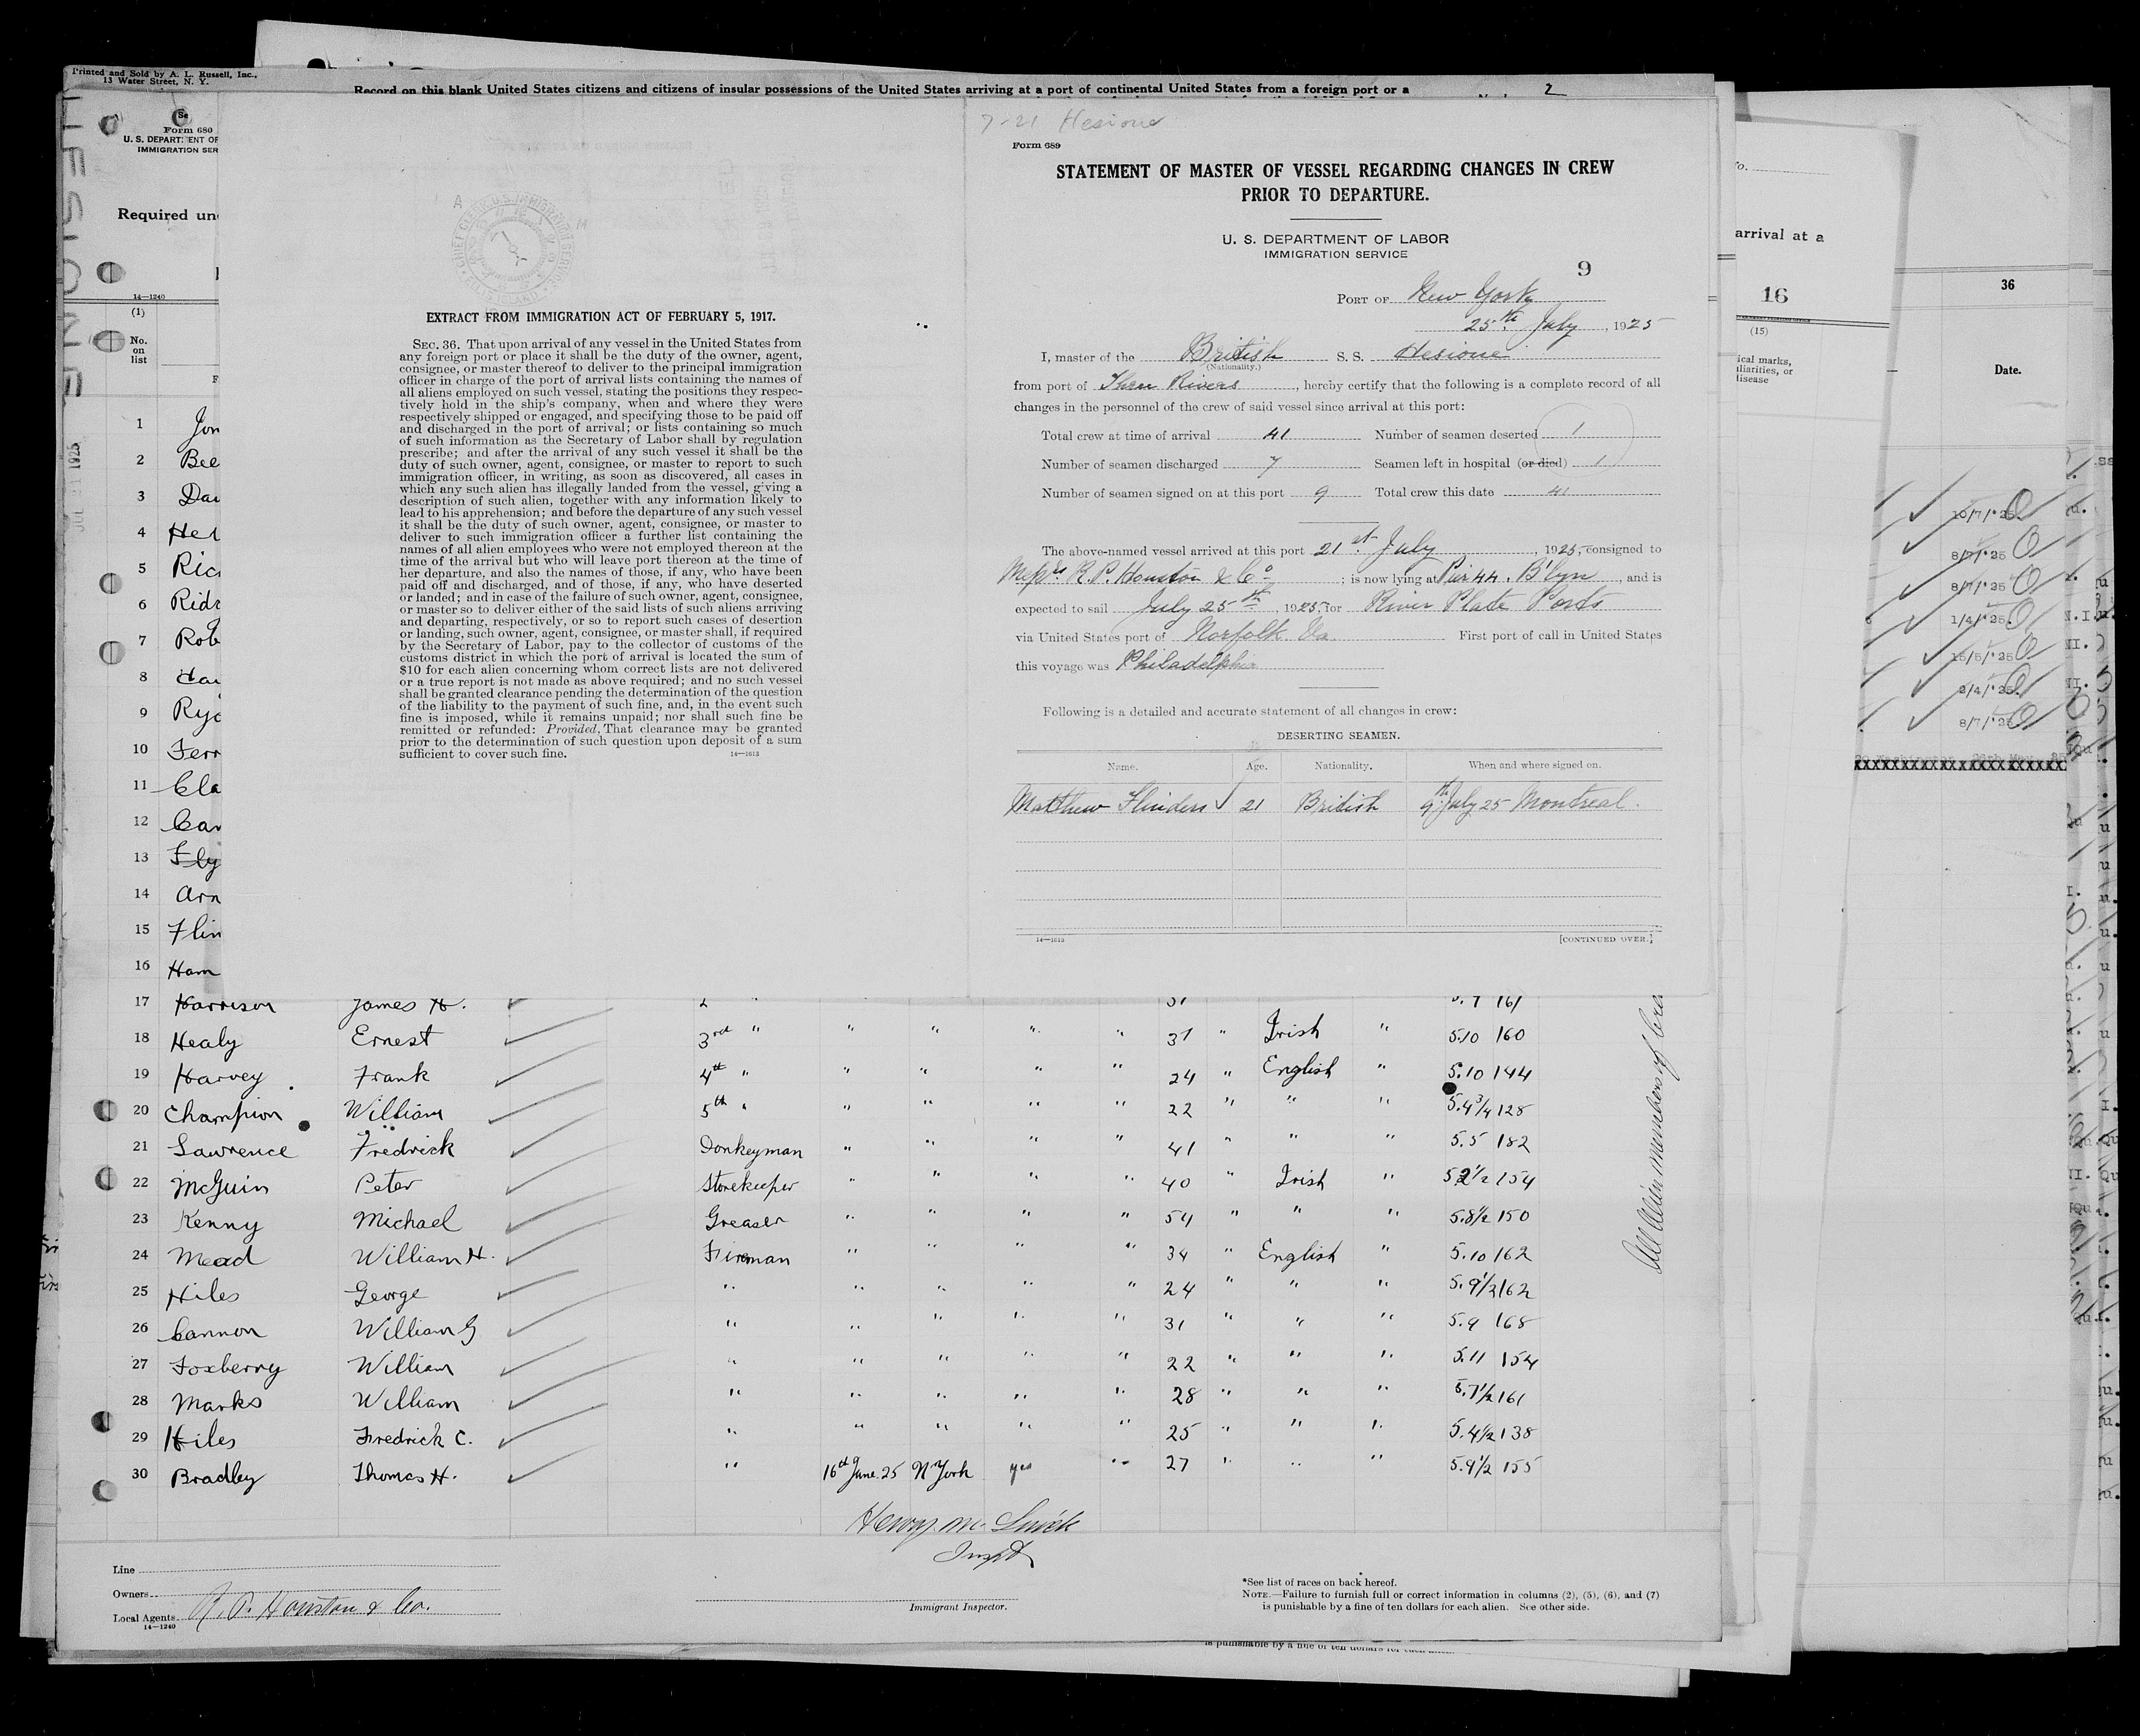 Printed and Sold by A. L. Russell, Inc.,
13 Water Street, N. Y.
Record on this blank United States citizens and citizens of insular possessions of the United States arriving at a port of continental United States from a foreign port or a
2
Form 680
U. S. DEPARTMENT OF
IMMIGRATION SER
Required un
14—1240
(1)
No.
on
list
F
JUL 21 1925
EXTRACT FROM IMMIGRATION ACT OF FEBRUARY 5, 1917.
SEC. 36. That upon arrival of any vessel in the United States from
any foreign port or place it shall be the duty of the owner, agent,
consignee, or master thereof to deliver to the principal immigration
officer in charge of the port of arrival lists containing the names of
all aliens employed on such vessel, stating the positions they respec-
tively hold in the ship's company, when and where they were
respectively shipped or engaged, and specifying those to be paid off
and discharged in the port of arrival; or lists containing so much
of such information as the Secretary of Labor shall by regulation
prescribe; and after the arrival of any such vessel it shall be the
duty of such owner, agent, consignee, or master to report to such
immigration officer, in writing, as soon as discovered, all cases in
which any such alien has illegally landed from the vessel, giving a
description of such alien, together with any information likely to
lead to his apprehension; and before the departure of any such vessel
it shall be the duty of such owner, agent, consignee, or master to
deliver to such immigration officer a further list containing the
names of all alien employees who were not employed thereon at the
time of the arrival but who will leave port thereon at the time of
her departure, and also the names of those, if any, who have been
paid off and discharged, and of those, if any, who have deserted
or landed; and in case of the failure of such owner, agent, consignee,
or master so to deliver either of the said lists of such aliens arriving
and departing, respectively, or so to report such cases of desertion
or landing, such owner, agent, consignee, or master shall, if required
by the Secretary of Labor, pay to the collector of customs of the
customs district in which the port of arrival is located the sum of
$10 for each alien concerning whom correct lists are not delivered
or a true report is not made as above required; and no such vessel
shall be granted clearance pending the determination of the question
of the liability to the payment of such fine, and, in the event such
fine is imposed, while it remains unpaid; nor shall such fine be
remitted or refunded: Provided, That clearance may be granted
prior to the determination of such question upon deposit of a sum
sufficient to cover such fine.
14—1613
7-21 Hesione
Form 689
STATEMENT OF MASTER OF VESSEL REGARDING CHANGES IN CREW
PRIOR TO DEPARTURE.
U. S. DEPARTMENT OF LABOR
IMMIGRATION SERVICE
9
PORT OF New York
25th July, 1925
I, master of the British S. S. Hesione
(Nationality.)
from port of Three Rivers, hereby certify that the following is a complete record of all
changes in the personnel of the crew of said vessel since arrival at this port:
Total crew at time of arrival 41 Number of seamen deserted 1
Number of seamen discharged 7 Seamen left in hospital (or died) 1
Number of seamen signed on at this port 9 Total crew this date 41
The above-named vessel arrived at this port 21st July, 1925, consigned to
Messrs R. P. Houston & Co; is now lying at Pier 44. B'lyn, and is
expected to sail July 25th, 1925, for River Plate Ports
via United States port of Norfolk Va. First port of call in United States
this voyage was Philadelphia
Following is a detailed and accurate statement of all changes in crew:
DESERTING SEAMEN.
Name. Age. Nationality. When and where signed on.
Matthew Flinders 21 British 9th July 25 Montreal.
14—1613
[CONTINUED OVER.]
arrival at a
16
(15)
ical marks,
uliarities, or
disease
36
Date.
10/7/'25.
8/7/'25
8/7/'25
1/4/'25.
15/5/'25
2/4/'25.
8/7/'25
1 Jon
2 Bee
3 Dav
4 Her
5 Ric
6 Rid
7 Rob
8 Har
9 Ryd
10 Ferr
11 Cla
12 Car
13 Fly
14 Arn
15 Flin
16 Ham
17 Harrison James H. 2 " 31 5.7 161
18 Healy Ernest 3rd " " " " " 37 " Irish " 5.10 160
19 Harvey Frank 4th " " " " " 24 " English " 5.10 144
20 Champion William 5th " " " " " 22 " " " 5.4¾ 128
21 Lawrence Fredrick Donkeyman " " " " 41 " " " 5.5 182
22 McGuin Peter Storekeeper " " " " 40 " Irish " 5.2½ 154
23 Kenny Michael Greaser " " " " 54 " " " 5.8½ 150
24 Mead William H. Fireman " " " " 34 " English " 5.10 162
25 Hiles George " " " " " 24 " " " 5.9½ 162
26 Cannon William G " " " " " 31 " " " 5.9 168
27 Foxberry William " " " " " 22 " " " 5.11 154
28 Marks William " " " " " 28 " " " 5.7½ 161
29 Hiles Fredrick C. " " " " " 25 " " " 5.4½ 138
30 Bradley Thomas H. " 16th June. 25 N York yes " 27 " " " 5.9½ 155
All Alien members of Crew
Henry
Inspt
Immigrant Inspector.
Line
Owners
Local Agents R. P. Houston & Co.
14—1240
*See list of races on back hereof.
NOTE.—Failure to furnish full or correct information in columns (2), (5), (6), and (7)
is punishable by a fine of ten dollars for each alien. See other side.
is punishable by a fine of ten dollars for each alien.